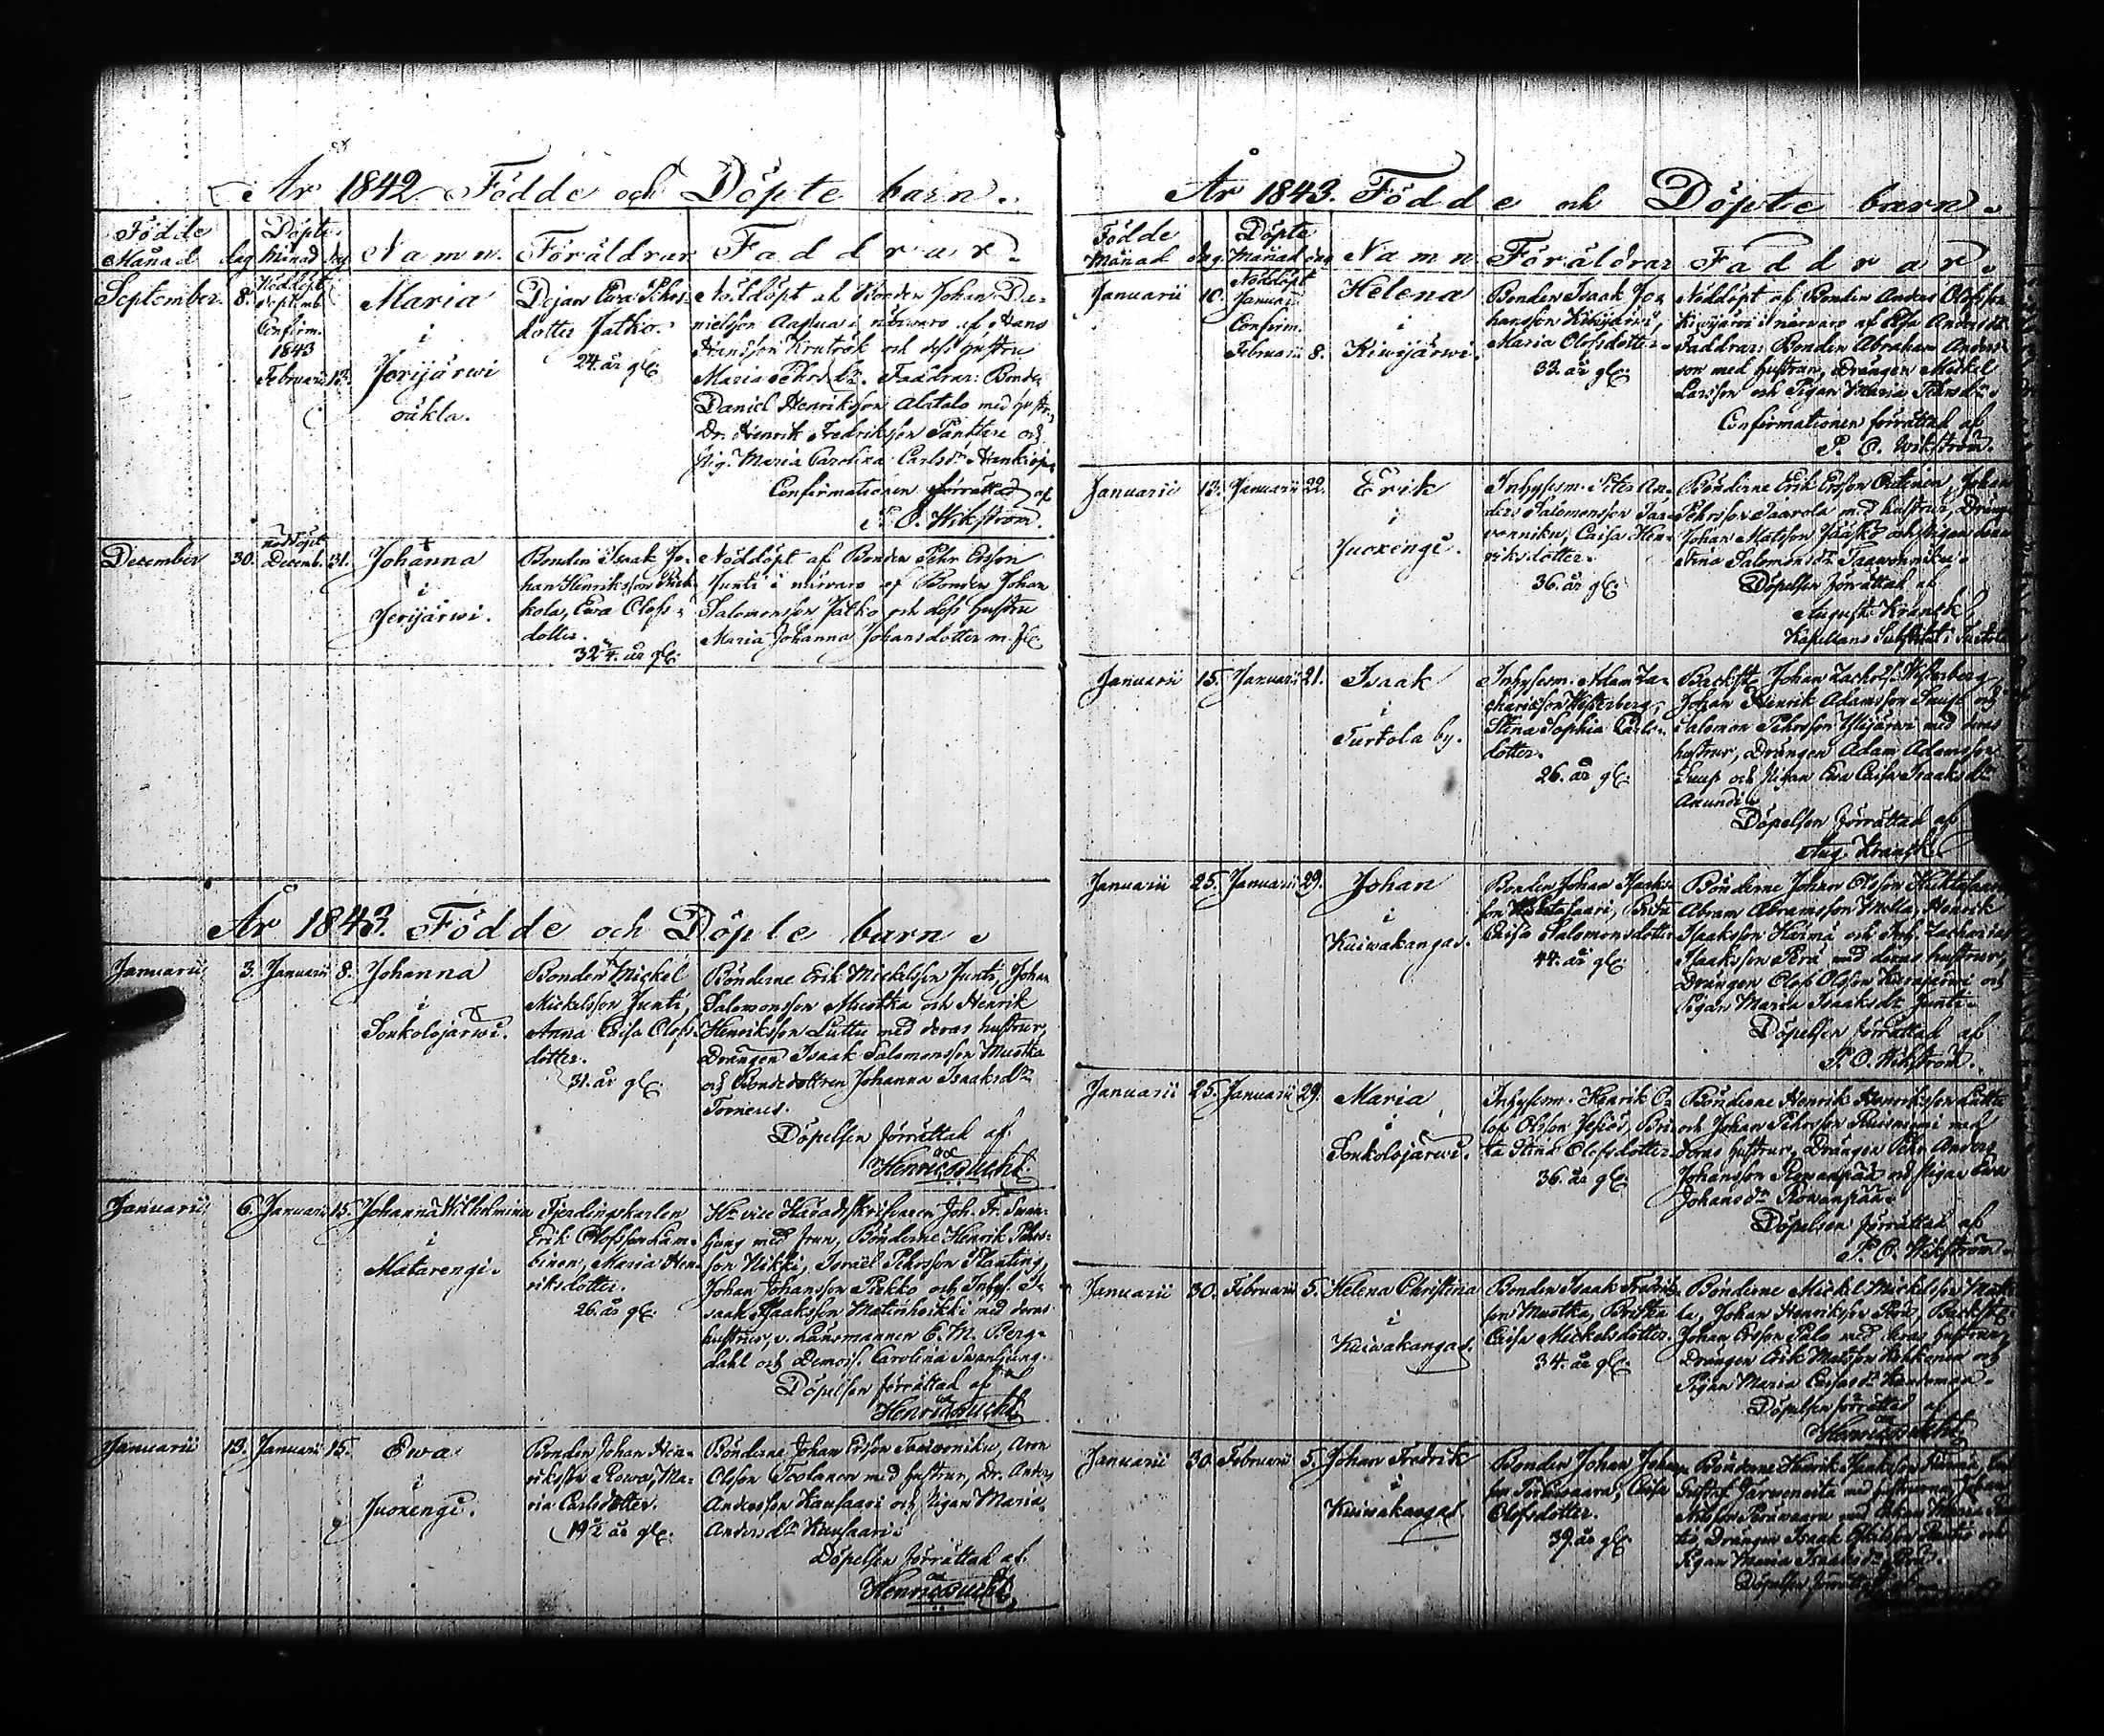 År 1842 Födde och Döpte barn.
Födde Månad dag Döpte Månad dag Namn. Föräldrar Faddrar.
September 8. Nöddöpt Septemb. Confirm. 1843 Februari 12.
Maria
i
Jerijärwi
oäkla.
Pigan Ewa Pehrs-
dotter Jatko.
24. år gl.
Nöddöpt af Bonden Johan Da-
nielsson i närvaro af Hans
Hansson Krutrök och dess hustru
Maria Pehrsdr. Faddrar: Bonden
Daniel Henriksson Alatalo med hustru,
Dr. Henrik Fredriksson Panttere och
Pig. Maria Carolina Carlsdr
Confirmationen förrättad af
P. O. Wikström.
December 30. nöddöpt Decemb. 31.
Johanna
i
Jerijärwi.
Bonden Isaak Jo-
han Henriksson
Ewa Olofs-
dotter.
32 år gl.
Nöddöpt af Bonden Pehr Ersson
Junti i närvaro af Bonden Johan
Salomonsson Jatko och dess hustru
Maria Johanna Johansdotter m. fl.
År 1843. Födde och Döpte barn.
Januarii 3. Januarii 8.
Johanna
i
Soukolojärwi.
Bonden Mickel
Mickelsson Junti,
Anna Caisa Olofs-
dotter.
31. år gl.
Bönderne Erik Mickelsson Junti, Johan
Salomonsson Mustka och Henrik
Henriksson Luttu med deras hustrur,
Drängen Isaak Salomonsson Mustka
och Bondedottren Johanna Isaaksdr
Torneus.
Döpelsen förrättad af
Henric Bucht.
Januarii 6. Januarii 15.
Johanna Wilhelmina
i
Matarengi.
Fjerdingskarlen
Erik Olofsson Lam-
binen, Maria Hen-
riksdotter.
26. år gl.
Hr vice Häradsskrifvaren Joh. Fr. Swan-
ljung med frun, Bönderne Henrik Pehrs-
son Nikki, Israel Pehrsson Planting,
Johan Johansson Piekko och Inhys. I-
saak Isaaksson Matinheikki med deras
hustrur, v. Länsmannen C. M. Berg-
dahl och Demois. Carolina Swanljung.
Döpelsen förrättad af
Henric Bucht.
Januarii 13. Januarii 15.
Ewa
i
Juoxengi.
Bonden Johan Hen-
riksson Rowa, Ma-
ria Carlsdotter.
19½ år gl.
Bönderne Johan Ersson Taawoniku, Aron
Olsson Toolanen med hustrur, Dr. Anders
Andersson Kausaari och Pigan Maria
Andersdr Kausaari.
Döpelsen förrättad af
Henric Bucht.
År 1843. Födde och Döpte barn.
Födde Månad dag Döpte Månad dag Namn Föräldrar Faddrar.
Januarii 10. Nöddöpt Januari Confirm. Februarii 8.
Helena
i
Kiwijärwi.
Bonden Isaak Jo-
hansson Kiwijärwi,
Maria Olofsdotter.
33. år gl.
Nöddöpt af Bonden Anders Olofsson
Kiwijärwi i närvaro af Elsa Andersdr
Faddrar: Bonden Abraham Anders-
son med hustru, Drängen Mickel
Larsson och Pigan Maria Pehrsdr.
Confirmationen förrättad af
P. O. Wikström.
Januarii 13. Januarii 22.
Erik
i
Juoxengi.
Inhysesm. Peter An-
ders Salomonsson Taa-
wonniku, Caisa Hen-
riksdotter.
36. år gl.
Bönderne Erik Ersson Outinen, Johan
Pehrsson Jaarola med hustrur, Dräng
Johan Matsson Jääskö och Pigan Anna
Stina Salomonsdr Taawonniku.
Döpelsen förrättad af
August Krank
Kapellans Substitut i Turtola
Januarii 15. Januarii 21.
Isaak
i
Turtola by.
Inhysesm. Adam Za-
chariksson Westerberg,
Stina Sophia Carls-
dotter.
26. år gl.
Backst. Johan Zachrisson Westerberg
Johan Henrik Adamsson Snup och
Salomon Pehrsson Ylijärwi med deras
hustrur, Drängen Adam Adamsson
Snup och Pigan Ewa Caisa Isaaksdr
Döpelsen förrättad af
Aug. Krank.
Januarii 25. Januarii 29.
Johan
i
Kuiwakangas.
Bonden Johan Isaaks-
son Hietasaari, Brita
Caisa Salomonsdotter
44. år gl.
Bönderne Johan Olsson
Abram Abramsson Mella, Henrik
Isaaksson Karmä och Inh. Zacharias
Isaaksson Perä med deras hustrur,
Drängen Olof Olsson och
Pigan Maria Isaaksdr Junti.
Döpelsen förrättad af
P. O. Wikström.
Januarii 25. Januarii 29.
Maria
i
Soukolojärwi.
Inhysesm. Henrik O-
lof Olsson Bri-
ta Stina Olofsdotter
36. år gl.
Bönderne Henrik Henriksson Luttu
och Johan Pehrsson med
deras hustrur, Drängen Pehr Anders
Johansson Rowanpää och Pigan Ewa
Johansdr Rowanpää.
Döpelsen förrättad af
P. O. Wikström.
Januarii 30. Februarii 5.
Helena Christina
i
Kuiwakangas.
Bonden Isaak Fredriks-
son Mustka, Britha
Caisa Mickelsdotter.
34. år gl.
Bönderne Mickel Mickelsson
Johan Henriksson Perä, Backst.
Johan Ersson Palo med deras hustrur
Drängen Erik Matsson och
Pigan Maria
Döpelsen förrättad af
Henric Bucht.
Januarii 30. Februarii 5.
Johan Fredrik
i
Kuiwakangas.
Bonden Johan Johans-
son Caisa
Olofsdotter.
39. år gl.
Bönderne Henrik Isaaksson Karmä,
Gustaf med hustrurna, Johan
Drängen Isaak och
Pigan Maria Isaaksdr Perä.
Döpelsen förrättad af